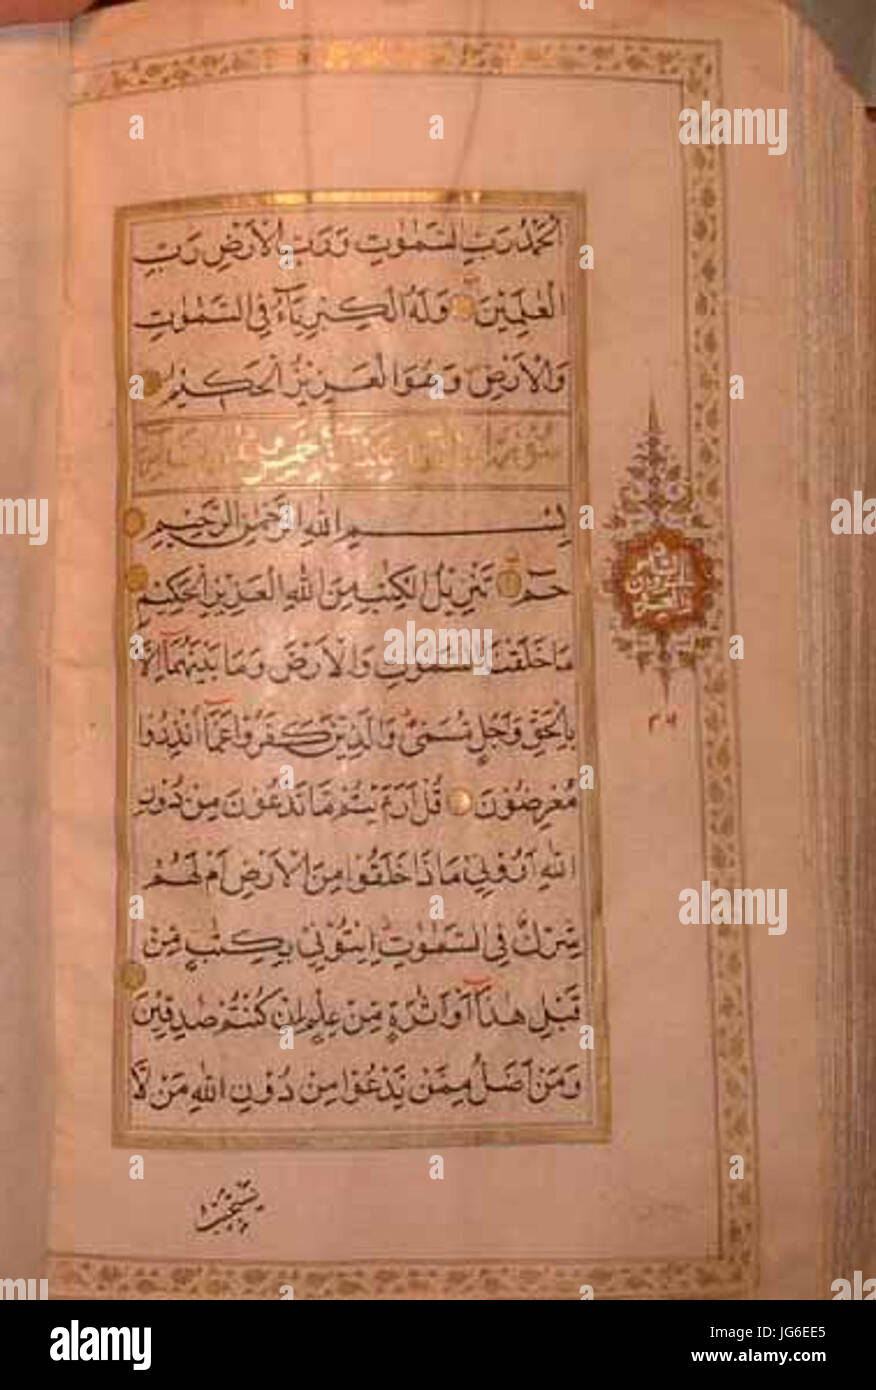 الْحَمْدُ رَبِّ السَّمٰوٰتِ وَرَبِّ الْاَرْضِ رَبِّ
الْعٰلَمِيْنَ وَلَهُ الْكِبْرِيَآءُ فِي السَّمٰوٰتِ
وَالْاَرْضِ وَهُوَ الْعَزِيْزُ الْحَكِيْمُ
سورة
بِسْمِ اللهِ الرَّحْمٰنِ الرَّحِيْمِ
حٰمٓ تَنْزِيْلُ الْكِتٰبِ مِنَ اللهِ الْعَزِيْزِ الْحَكِيْمِ
مَا خَلَقْنَا السَّمٰوٰتِ وَالْاَرْضَ وَمَا بَيْنَهُمَآ اِلَّا
بِالْحَقِّ وَاَجَلٍ مُسَمًّى وَالَّذِيْنَ كَفَرُوْا عَمَّآ اُنْذِرُوْا
مُعْرِضُوْنَ قُلْ اَرَءَيْتُمْ مَا تَدْعُوْنَ مِنْ دُوْنِ
اللهِ اَرُوْنِيْ مَاذَا خَلَقُوْا مِنَ الْاَرْضِ اَمْ لَهُمْ
شِرْكٌ فِي السَّمٰوٰتِ اِيْتُوْنِيْ بِكِتٰبٍ مِنْ
قَبْلِ هٰذَآ اَوْ اَثٰرَةٍ مِنْ عِلْمٍ اِنْ كُنْتُمْ صٰدِقِيْنَ
وَمَنْ اَضَلُّ مِمَّنْ يَدْعُوْا مِنْ دُوْنِ اللهِ مَنْ لَا
٢٦
يستجيب
alamy
a
alamy stock photo
Image ID: JG6EE5
www.alamy.com